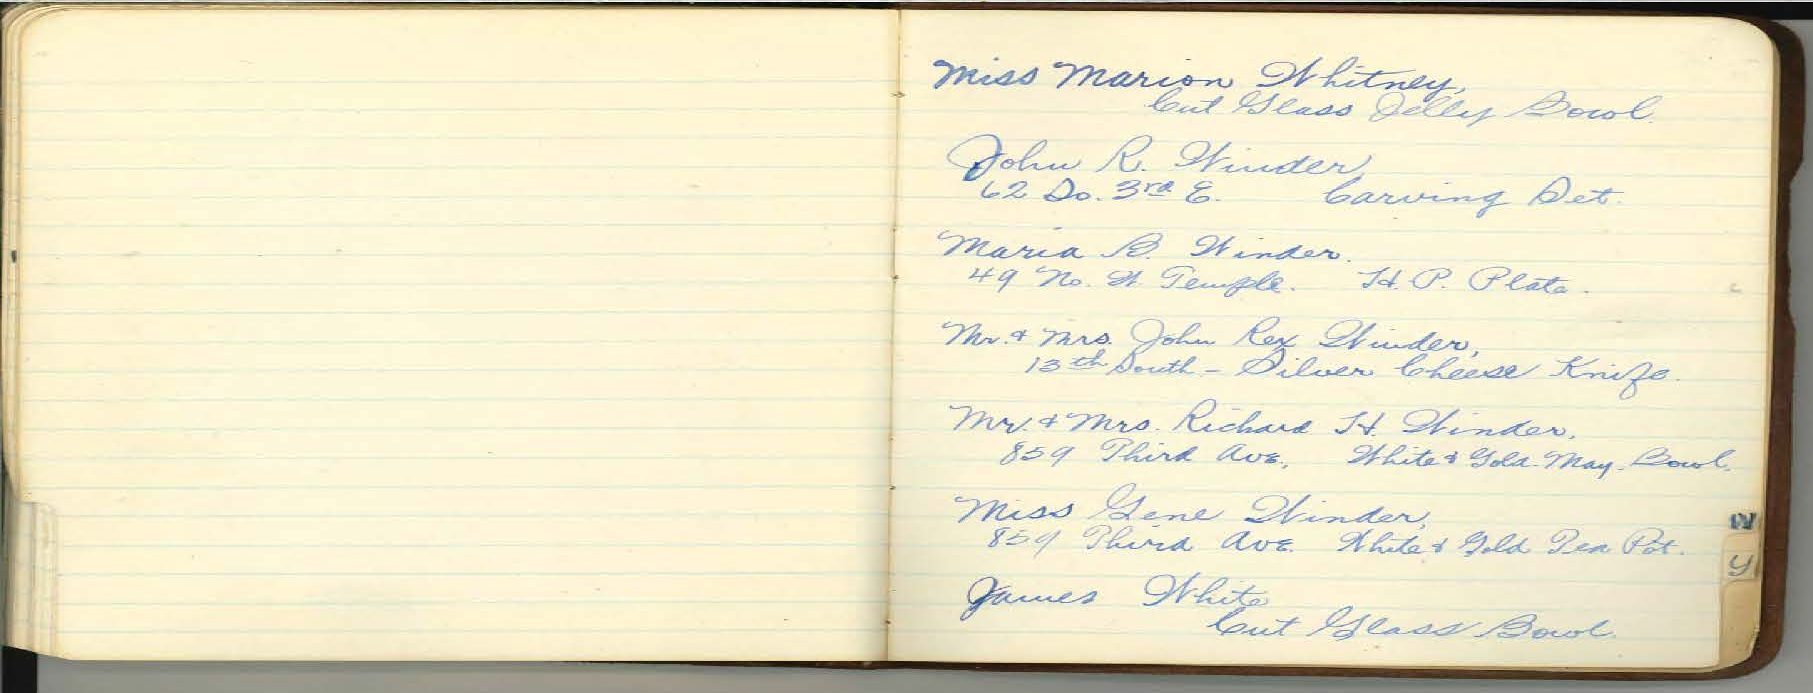 Miss Marion Whitney,
Cut Glass Jelly Bowl.
John R. Winder,
62 So. 3rd E. Carving Set.
Maria B. Winder.
49 No. W Temple. H. P. Plate.
Mr. & Mrs. John Rex Winder,
13th South - Silver Cheese Knife.
Mr. & Mrs. Richard H. Winder,
859 Third Ave., White & Gold May. Bowl.
Miss Gene Winder,
859 Third Ave. White & Gold Tea Pot.
James White
Cut Glass Bowl.
W
Y